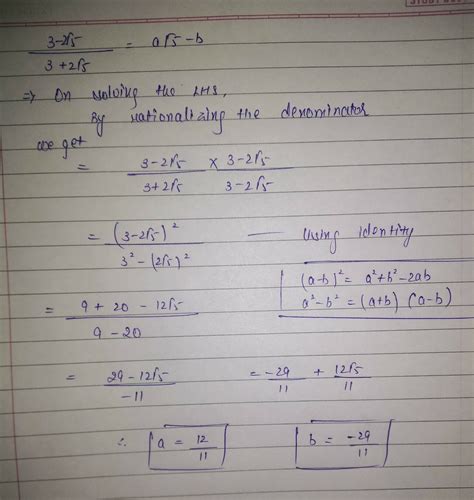 (3-2√5)/(3+2√5) = a√5 - b
⇒ On solving the LHS,
By rationalizing the denominator
we get
= (3-2√5)/(3+2√5) × (3-2√5)/(3-2√5)
= (3-2√5)²/(3²-(2√5)²) — using identity
(a-b)² = a²+b²-2ab
a²-b² = (a+b) (a-b)
= (9+20-12√5)/(9-20)
= (29-12√5)/-11 = -29/11 + 12√5/11
∴ a = 12/11 b = -29/11